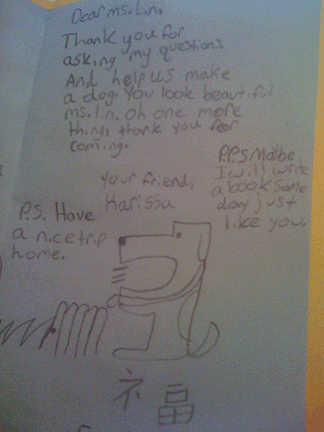 Dear ms.Lin,
Thank you for
asking my questions.
And help us make
a dog. You look beautiful
ms.Lin. Oh one more
thing, thank you for
coming.
Your friend,
Karissa
P.S. Have
a nice trip
home.
P.P.S Maybe
I will write
a book some
day just
like you.
福